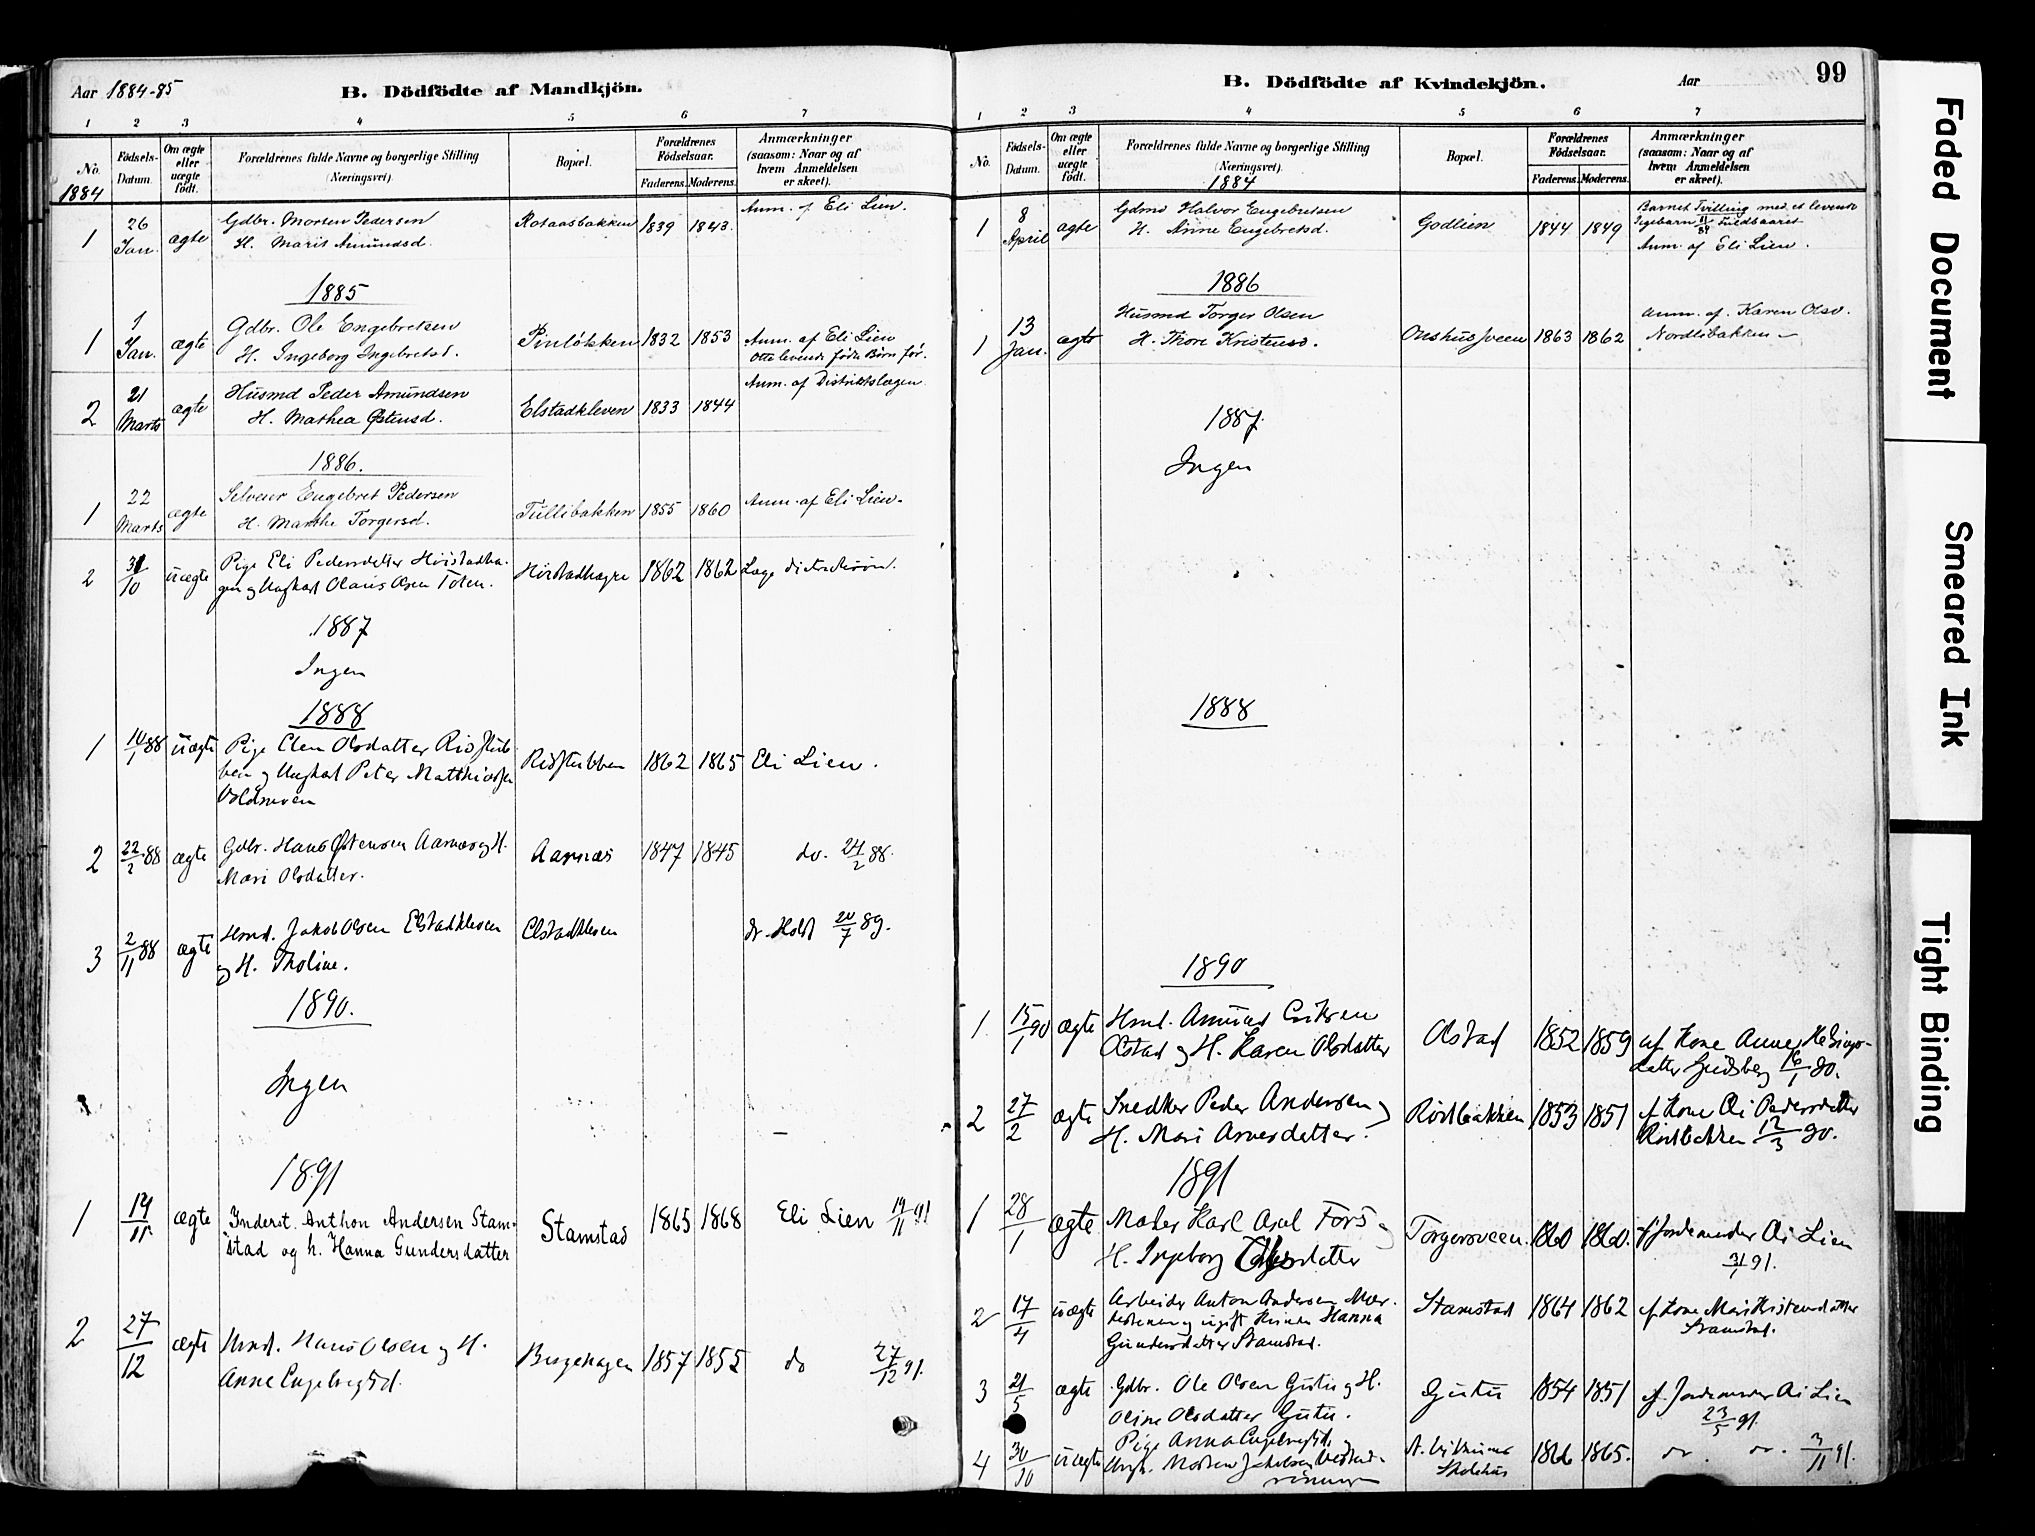 Aar 1884-85
B. Dödfödte af Mandkjön.
1 2 3 4 5 6 7
No. Födsels-Datum. Om ægte eller uægte födt. Forældrenes fulde Navne og borgerlige Stilling (Næringsvei). Bopæl. Forældrenes Fødselsaar. Faderens. Moderens. Anmærkninger (saasom: Naar og af hvem Anmeldelsen er skeet).
1884
1 26 Jan. ægte Gdbr. Morten Pedersen
H. Marit Amundsd. Rotaasbakken 1839 1843. Anm. af Eli Lien.
1885
1 1 Jan. ægte Gdbr. Ole Engebretsen
H. Ingeborg Ingebretsd. 1832 1853 Anm. af Eli Lien
Otte levende fødte Børn før.
2 21 Marts ægte Husmd Peder Amundsen
H. Mathea Østensd. Elstadkleven 1833 1844 Anm. af Distriktslægen
1886.
1 22 Marts ægte Selveier Engebret Pedersen
H. Marthe Torgersd. Tullibakken 1855 1860 Anm. af Eli Lien.
2 31/10 uægte Pige Eli Pedersdatter
og Ungkarl Olaus Olsen Toten. 1862 1862
1887
Ingen
1888
1 14/1 88 uægte Pige Elen Olsdatter Risstub-
ben og Ungkarl Peter Matthiassen
Risstubben 1862 1865 Eli Lien.
2 22/2 88 ægte Gdbr. Hans Østensen Aarnæs og H.
Mari Olsdatter. Aarnæs 1847 1845 do. 24/2 88.
3 2/11 88 ægte Hmd. Jakob Olsen Elstadkleven
og H. Tholine. Elstadkleven dr. Holst 20/7 89.
1890.
Ingen
1891
1 14/11 ægte Inderst. Anthon Andersen Stam-
stad og h. Hanna Gundersdatter Stamstad 1865 1868 Eli Lien 19/11 91
2 27/12 ægte Hmd. Hans Olsen og H.
Anne Engebregtsd. 1857 1855 do 27/12 91.
B. Dödfödte af Kvindekjön.
Aar
99
1 2 3 4 5 6 7
No. Födsels-Datum. Om ægte eller uægte födt. Forældrenes fulde Navne og borgerlige Stilling (Næringsvei). Bopæl. Forældrenes Födselsaar. Faderens. Moderens. Anmærkninger (saasom: Naar og af hvem Anmeldelsen er skeet).
1884
1 8 April ægte Gdmd Halvor Engebretsen
H. Anne Engebretsd. Godlien 1844 1849 Barnet Tvilling med et levende
Anm. af Eli Lien.
1886
1 13 Jan. ægte Husmd Torger Olsen
H. Thore Kristensd. 1863 1862 Anm. af. Karen Olsd.
Nordlibakken
1887.
Ingen
1888
1890
1. 15/1 90 ægte Hmd. Amund Eriksen
Olstad og H. Karen Olsdatter Olstad 1852 1859 af Kone Anne
datter 16/1 90.
2 27/2 ægte Snedker Peder Andersen og
H. Mari Arnesdatter. Rostbakken 1853 1851 af Kone Eli Pedersdatter
Rostbakken 12/3 90.
1891
1 28/1 ægte Maler Karl Axel Fors og
H. Ingeborg Torgersveen 1860 1860. af Jordemoder Eli Lien
31/1 91.
2 17/4 uægte Arbeider Anton Andersen
og ugift Kvinde Hanna
Gundersdatter Stamstad. Stamstad 1864 1862 af Kone Mari Kristensdatter
Stamstad.
3 21/5 ægte Gdbr. Ole Olsen Gutu og H.
Oline Olsdatter Gutu. Gutu 1854 1851 af Jordemoder Eli Lien
23/5 91.
4 30/10 uægte Pige Anna Engebregtsd. og
Ungk. Morten Jakobsen
Skolehus 1866 1865. do. do. 3/11 91.
Faded Document
Smeared Ink
Tight Binding